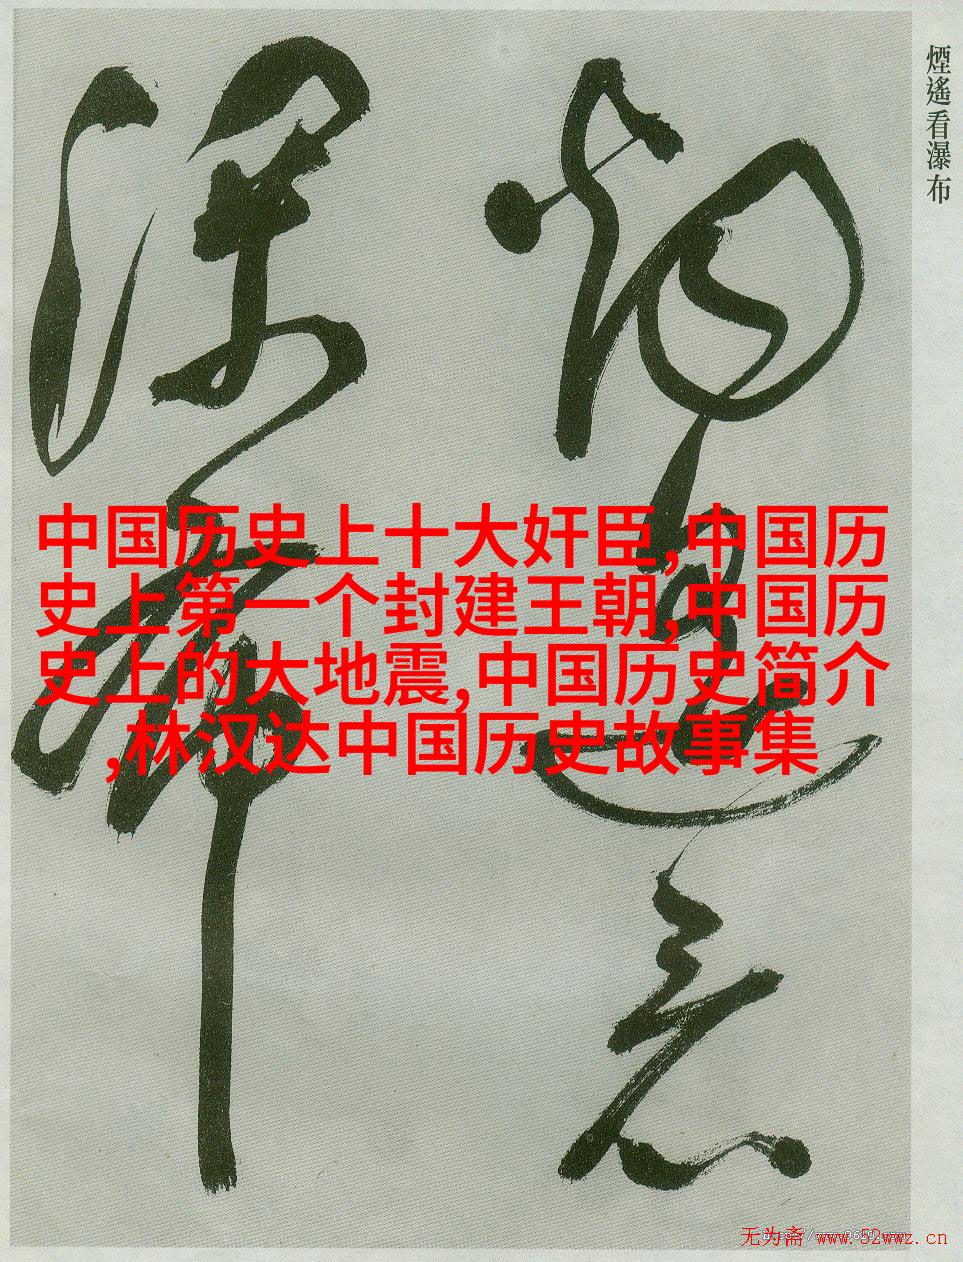 煙遙看瀑布
煙遙看
瀑布
中国历史上十大奸臣,中国历
史上第一个封建王朝,中国历
史上的大地震,中国历史简介
,林汉达中国历史故事集
无为斋 www.52wwz.cn